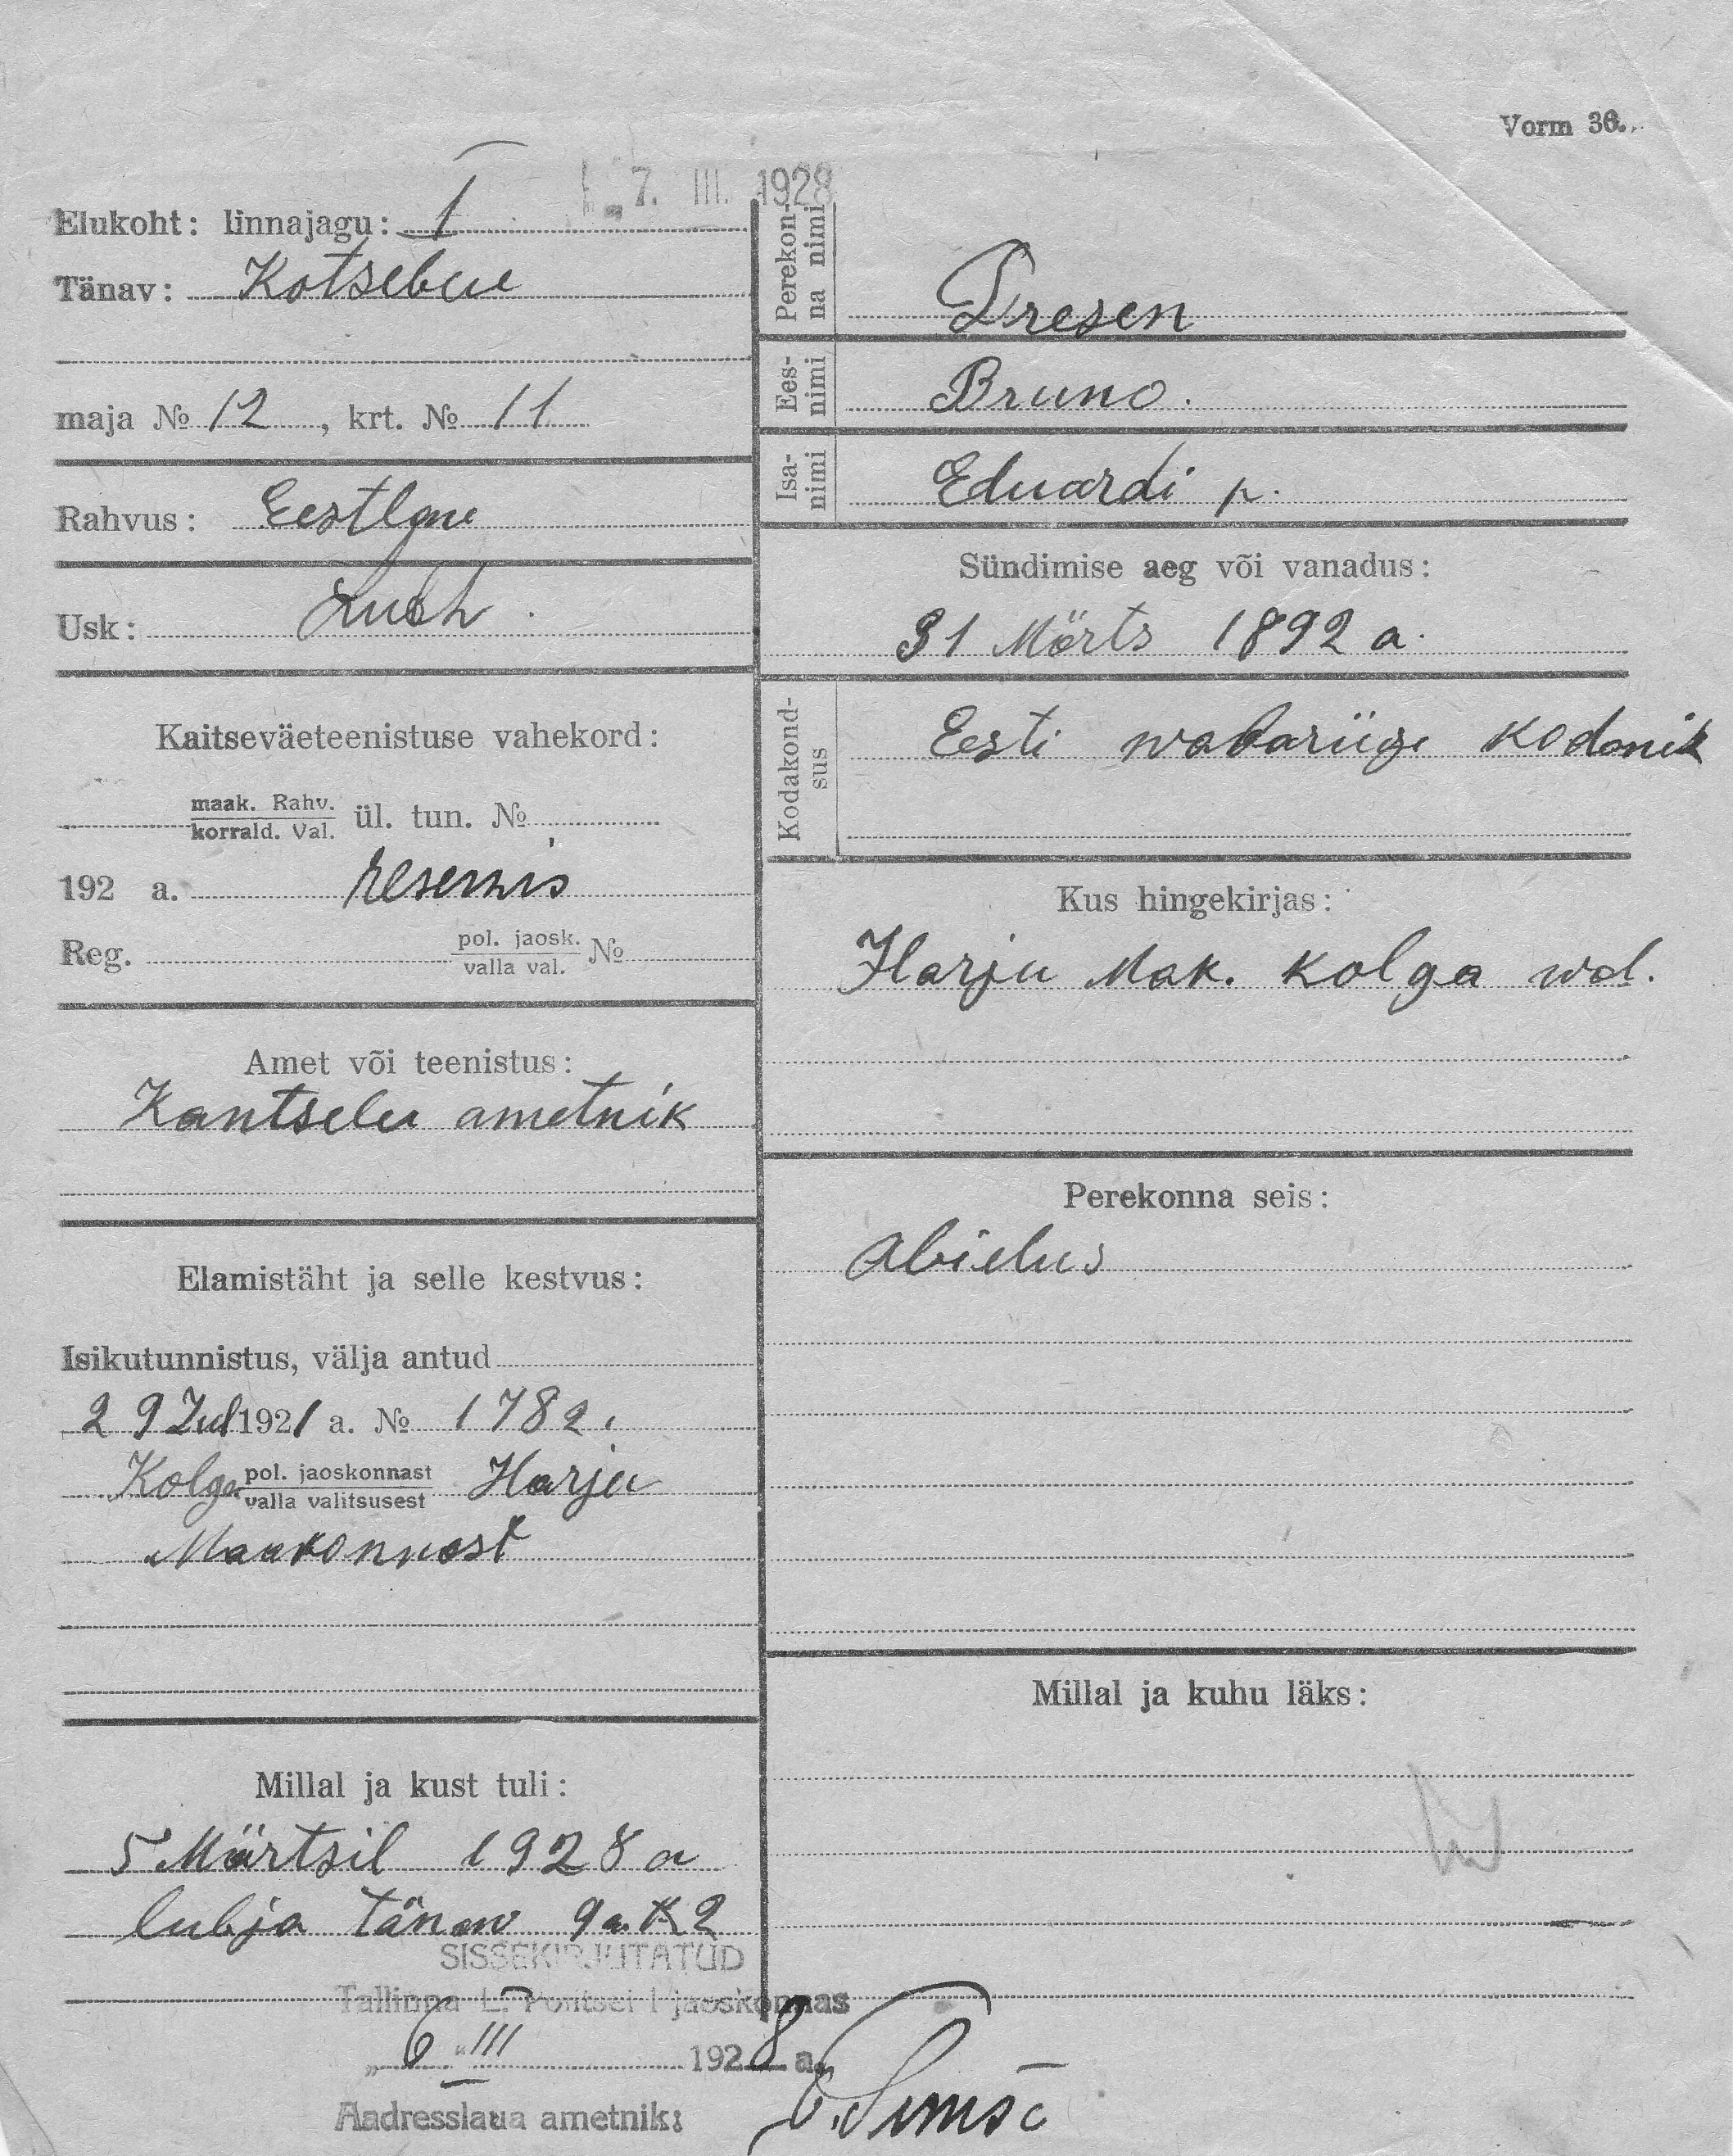 Vorm 36.
7. III. 1928
Elukoht: linnajagu: I
Tänav: Kotsebue
maja № 12, krt. № 11
Rahvus: Eestlane
Usk: Luth.
Kaitseväeteenistuse vahekord:
maak. Rahv.
korrald. Val. ül. tun. №
192 a. reservis
Reg. pol. jaosk. №
valla val.
Amet või teenistus:
Kantselei ametnik
Elamistäht ja selle kestvus:
Isikutunnistus, välja antud
29 Jul 1921 a. № 1782.
Kolga pol. jaoskonnast Harju
valla valitsusest
Maakonnast
Millal ja kust tuli:
5 Märtsil 1928 a
lubja tänaw 9a. K 2
Perekonna nimi
Dresen
Eesnimi
Bruno.
Isanimi
Eduardi p.
Sündimise aeg või vanadus:
31 Märts 1892 a.
Kodakondsus
Eesti wabariigi kodanik
Kus hingekirjas:
Harju Mak. Kolga wal.
Perekonna seis:
abielus
Millal ja kuhu läks:
SISSEKIRJUTATUD
Tallinna L. Politsei I jaoskonnas
„6" III 1928 a.
Aadresslaua ametnik: